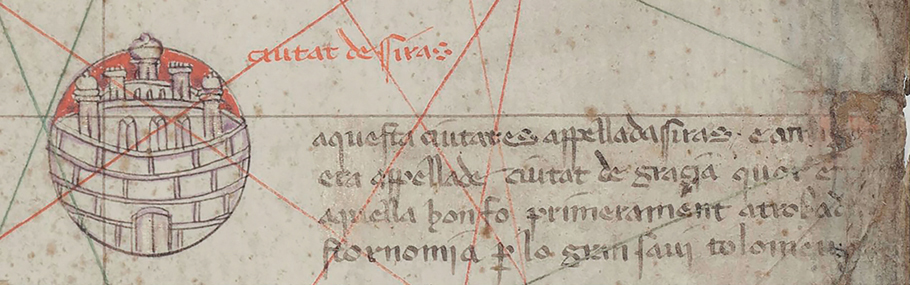 ciutat de siras
aquesta ciutat es appellada siras · e an
era appellade ciutat de gracia quor e
aquella hon fo primerament atrobad
stornomia p lo gran savi tolomeu